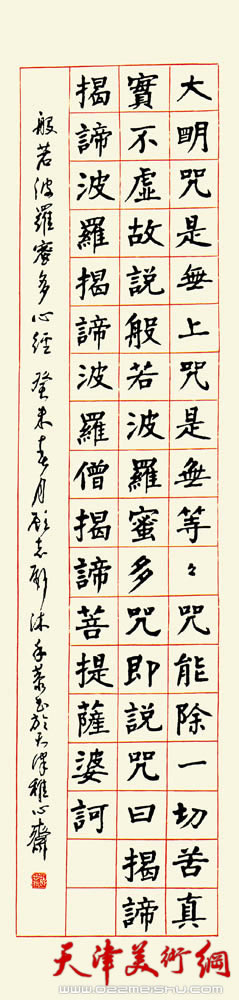 大眀咒是無上咒是無等々咒能除一切苦真
實不虛故説般若波羅蜜多咒即説咒曰揭諦
揭諦波羅揭諦波羅僧揭諦菩提薩婆訶
般若波羅蜜多心經 癸未春月顧志新沐手恭書於天津雅心齋
天津美術網
www.022meishu.com